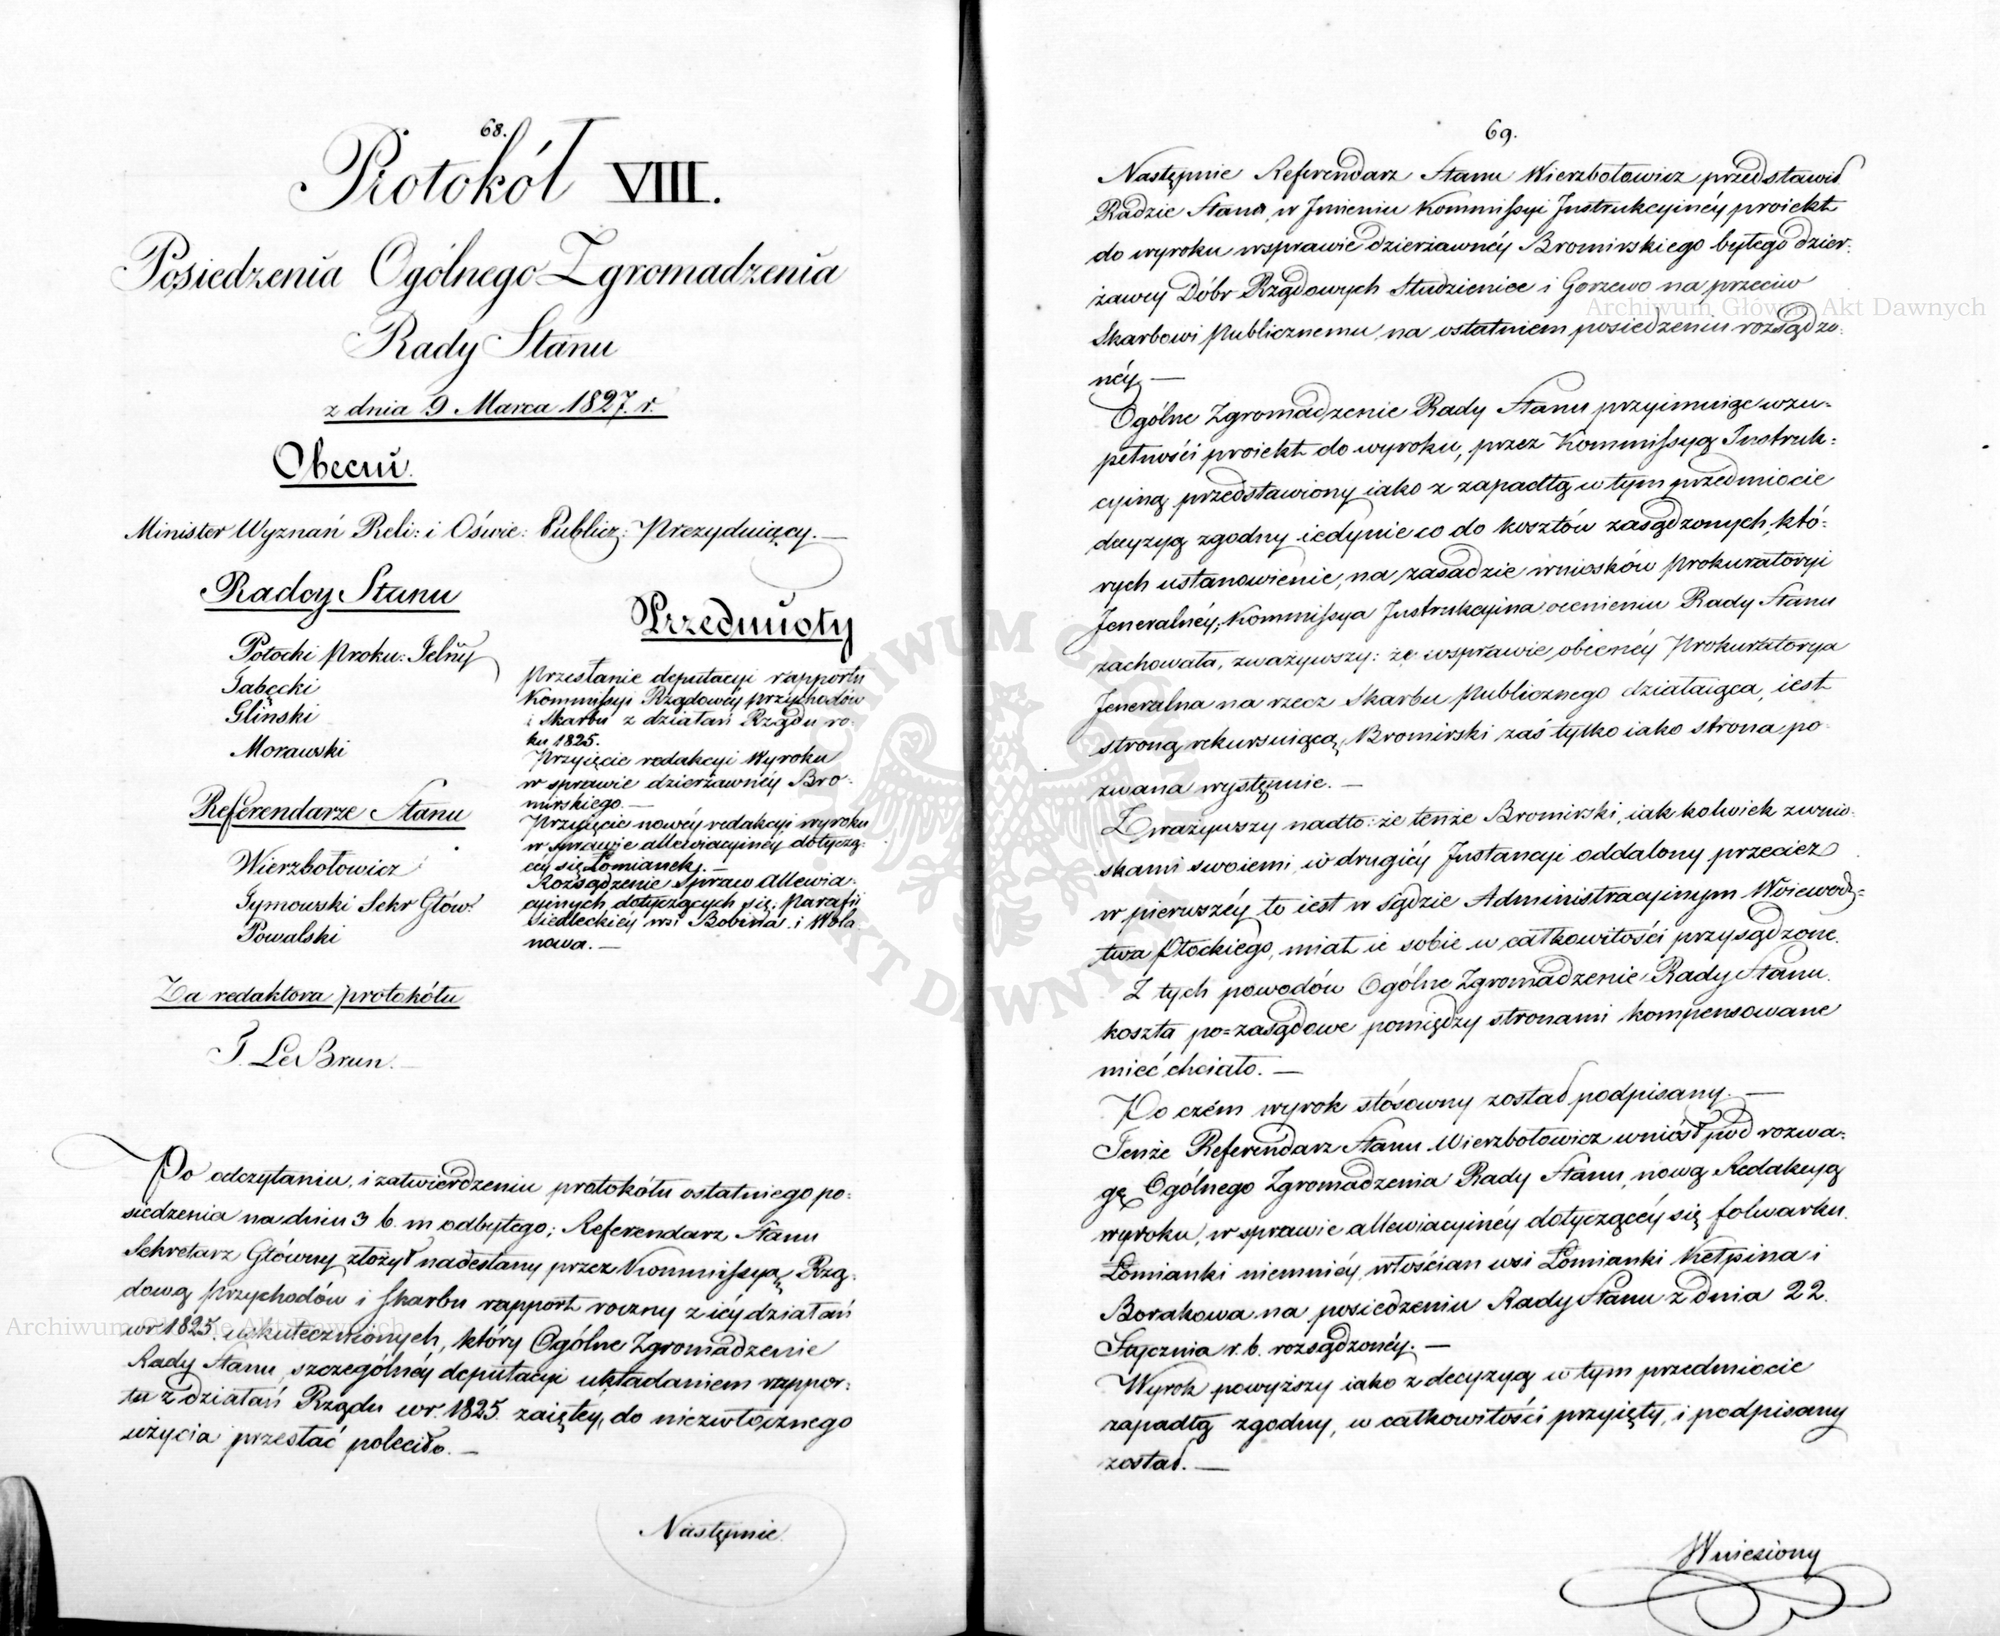 68.
Protokół VIII.
Posiedzenia Ogólnego Zgromadzenia
Rady Stanu
z dnia 9 Marca 1827. r.
Obecni.
Minister Wyznań Reli: i Oświe: Publicz: Prezyduiący.—
Radcy Stanu
Potocki Proku: Jelńy
Gliński
Morawski
Referendarze Stanu
Wierzbołowicz
Tymowski Sekr Głów:
Powalski
Za redaktora protokółu
T. Le Brun.—
Przedmioty
Przesłanie deputacyi rapportu
Kommissyi Rządowéy Przychodów
i Skarbu z działań Rządu ro-
ku 1825.
Przyięcie redakcyi Wyroku
w sprawie dzierżawnéy Bro-
mirskiego.—
Przyięcie nowéy redakcyi wyroku
w sprawie allewiacyinéy dotyczą-
céy się Łomianek.—
Rozsądzenie spraw Allewia-
cyinych dotyczących się: Parafii
Siedleckiéy wsi Bobina. i Wola-
nowa.—
Po odczytaniu, i zatwierdzeniu protokółu ostatniego po-
siedzenia na dniu 3 b. m odbytego; Referendarz Stanu
Sekretarz Główny złożył nadesłany przez Kommissyą Rzą-
dową Przychodów i Skarbu rapport roczny z iéy działań
w r 1825. uskutecznionych, który Ogólne Zgromadzenie
Rady Stanu, szczególnéy deputacyi układaniem rappor-
tu z działań Rządu w r. 1825. zaiętéy, do niezwłocznego
użycia przesłać poleciło.—
Następnie
69.
Następnie Referendarz Stanu Wierzbołowicz przedstawił
Radzie Stanu, w Jmieniu Kommissyi Jnstrukcyinéy proiekt
do wyroku w sprawie dzierżawnéy Bromirskiego byłego dzier-
żawcy Dóbr Rządowych Studzieniec i Gorzewo na przeciw
Skarbowi Publicznemu, na ostatniem posiedzeniu rozsądzo-
néy.—
Ogólne Zgromadzenie Rady Stanu przyimuiąc w zu-
pełności proiekt do wyroku, przez Kommissyą Jnstruk-
cyiną przedstawiony iako z zapadłą w tym przedmiocie
decyzyą zgodny iedynie co do kosztów zasądzonych, któ-
rych ustanowienie, na zasadzie wniosków Prokuratoryi
Jeneralnéy, Kommissya Jnstrukcyina ocenieniu Rady Stanu
zachowała, zważywszy: że w sprawie obecnéy Prokuratorya
Jeneralna na rzecz Skarbu Publicznego działaiąca, iest
stroną rekursuiącą, Bromirski zaś tylko iako strona po-
zwana występuie.—
Zważywszy nadto: że tenże Bromirski, iak kolwiek z wnio-
skami swoiemi w drugiéy Jnstancyi oddalony przecież
w pierwszéy to iest w Sądzie Administracyinym Woiewódz-
twa Płockiego, miał ie sobie w całkowitości przysądzone.
Z tych powodów Ogólne Zgromadzenie Rady Stanu.
koszta po=zasądowe pomiędzy stronami kompensowane
mieć chciało.—
Po czém wyrok stósowny został podpisany.—
Tenże Referendarz Stanu Wierzbołowicz wniósł pod rozwa-
gę Ogólnego Zgromadzenia Rady Stanu, nową Redakcyą
wyroku, w sprawie allewiacyinéy dotyczącéy się folwarku
Łomianki niemniéy włościan wsi Łomianki Kełpina i
Borakowa na posiedzeniu Rady Stanu z dnia 22.
Stycznia r. b. rozsądzonéy.—
Wyrok powyższy iako z decyzyą w tym przedmiocie
zapadłą zgodny, w całkowitości przyięty, i podpisany
został.—
Wniesiony
Archiwum Główne Akt Dawnych
Archiwum Główne Akt Dawnych
ARCHIWUM GŁÓWNE AKT DAWNYCH